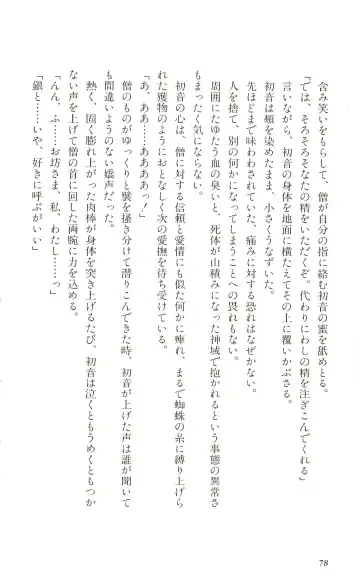 含み笑いをもらして、僧が自分の指に絡む初音の蜜を舐めとる。
「では、そろそろそなたの精をいただくぞ。代わりにわしの精を注ぎこんでくれる」
言いながら、初音の身体を地面に横たえてその上に覆いかぶさる。
初音は頬を染めたまま、小さくうなずいた。
先ほどまで味わわされていた、痛みに対する恐れはなぜかない。
人を捨て、別の何かになってしまうことへの畏れもない。
周囲にたゆたう血の臭いと、死体が山積みになった神域で抱かれるという事態の異常さ
もまったく気にならない。
初音の心は、僧に対する信頼と愛情にも似た何かに痺れ、まるで蜘蛛の糸に縛り上げら
れた獲物のようにおとなしく次の愛撫を待ち受けている。
「あ、ああ……ああああっ！」
僧のものがゆっくりと襞を掻き分けて潜りこんできた時、初音が上げた声は誰が聞いて
も間違いようのない嬌声だった。
熱く、固く膨れ上がった肉棒が身体を突き上げるたび、初音は泣くともうめくともつか
ない声を上げて僧の首に回した両腕に力を込める。
「んん、ふっ、お坊さま、私、わたし……っ」
「銀と……いや、好きに呼ぶがいい」
78